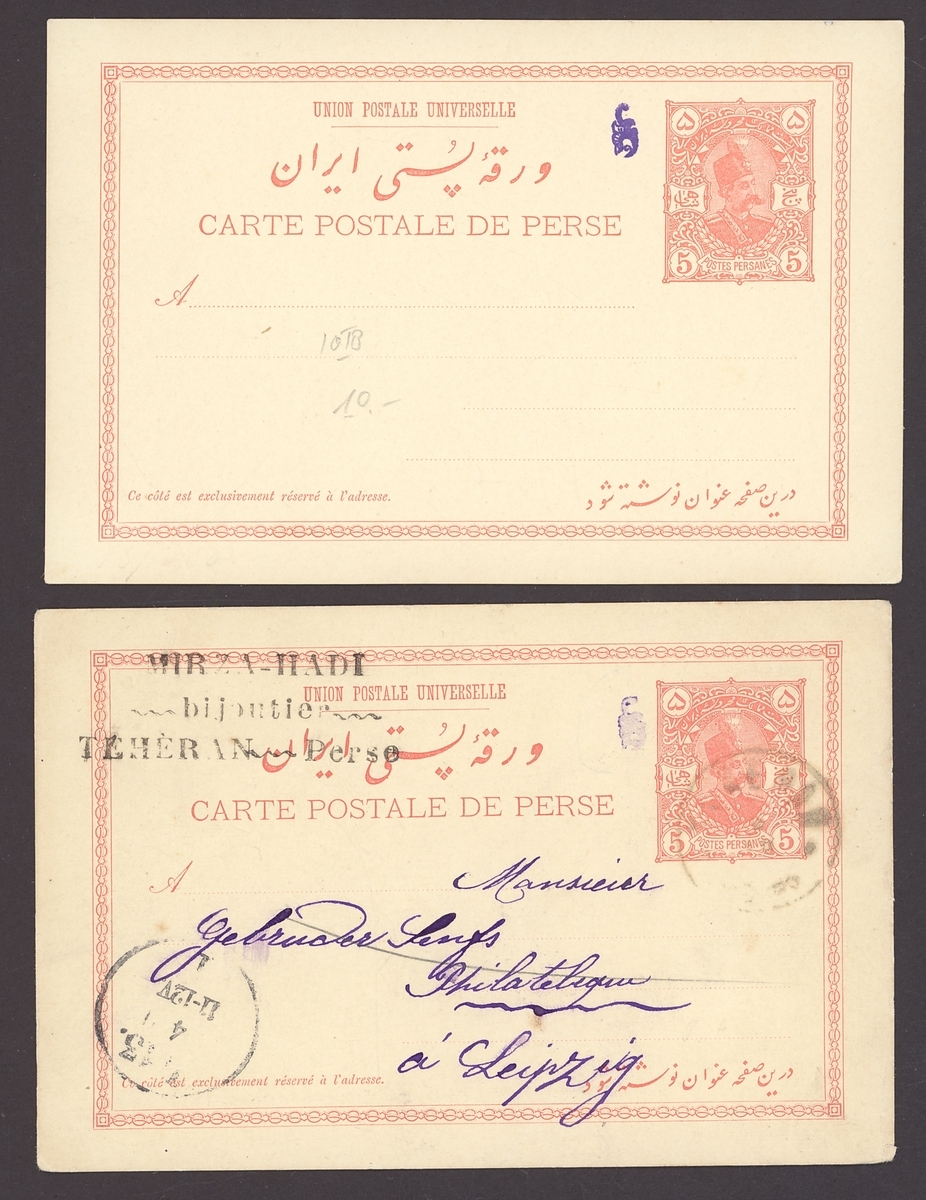 UNION POSTALE UNIVERSELLE
ورقهٔ پستی ایران
CARTE POSTALE DE PERSE
۵ ۵
5 POSTES PERSANES 5
A
10 IB
10.-
Ce côté est exclusivement réservé à l'adresse.
درین صفحه عنوان نوشته شود
MIRZA-HADI
UNION POSTALE UNIVERSELLE
bijoutier
TÉHÈRAN Perse
ورقهٔ پستی ایران
CARTE POSTALE DE PERSE
۵ ۵
5 POSTES PERSANES 5
A
Mansieier
Gebruder Senfs
Philateleque
á Leipzig
11-12V
4
Ce côté est exclusivement réservé à l'adresse.
درین صفحه عنوان نوشته شود